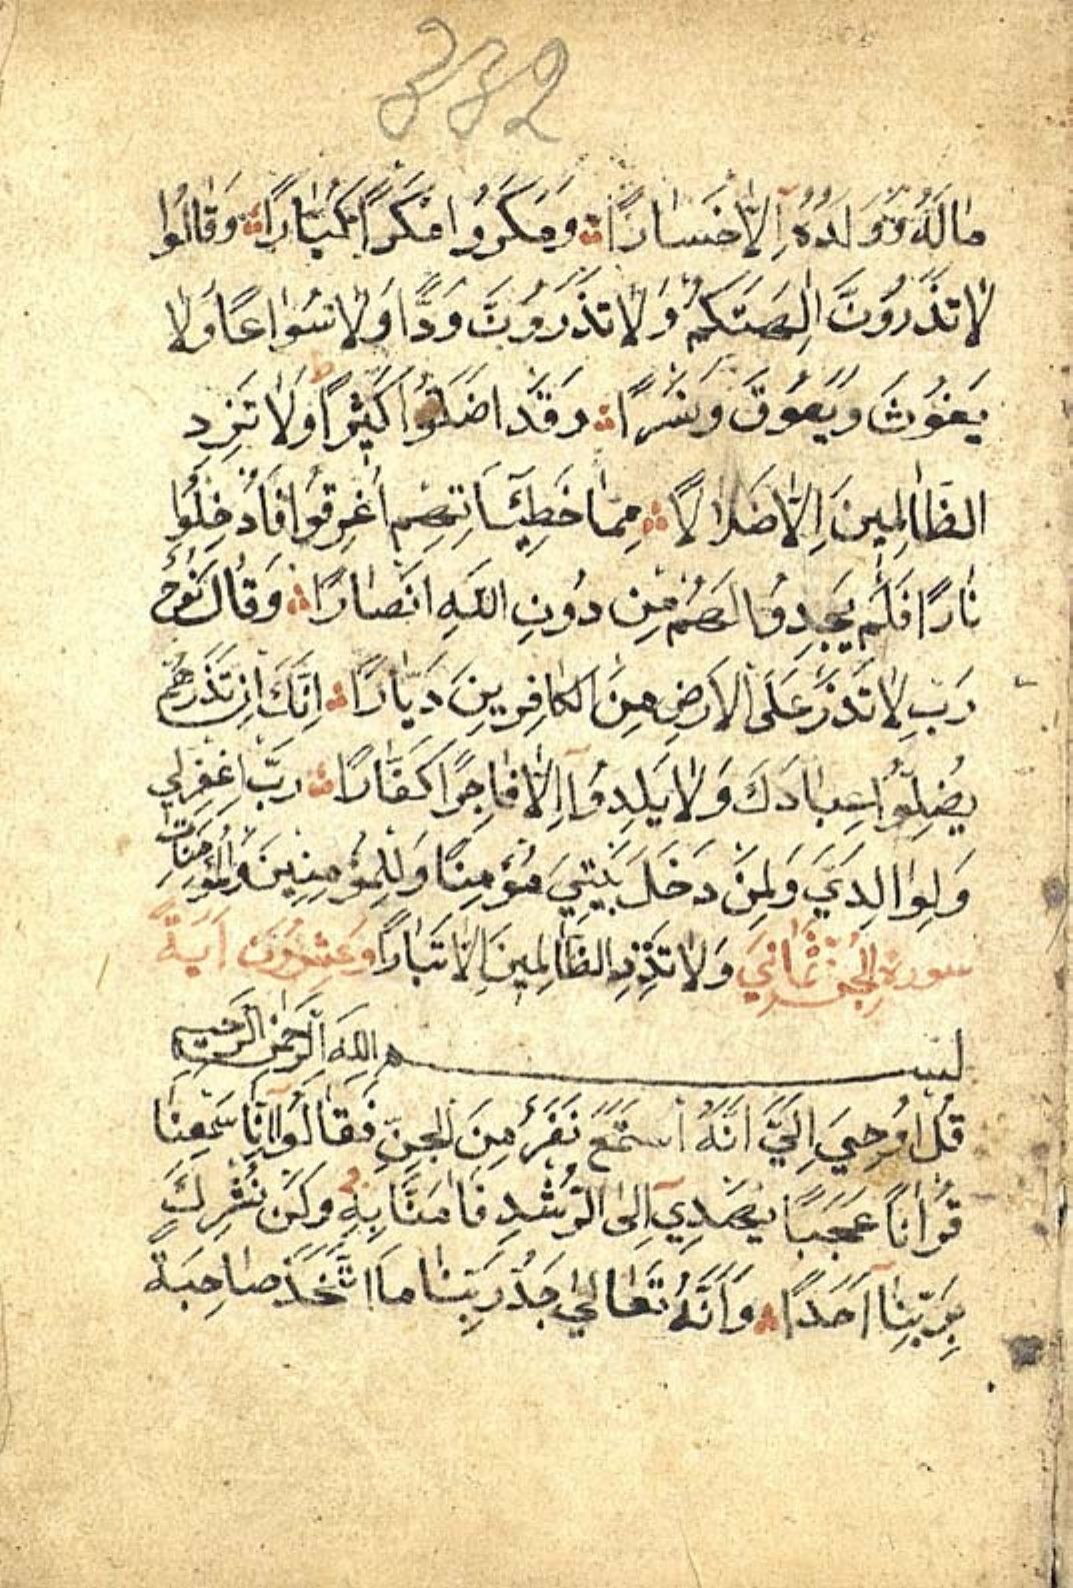 332
مَالُهُ وَوَلَدُهُ إِلَّا خَسَارًا وَمَكَرُوا مَكْرًا كُبَّارًا وَقَالُوا
لَا تَذَرُونَّ اٰلِهَتَكُمْ وَلَا تَذَرَوُنَّ وَدًّا وَلَا سُوَاعًا وَلَا
يَغُوثَ وَيَعُوقَ وَنَسْرًا وَقَدْ اَضَلُّوا كَثِيرًا وَلَا تَزِد
الظَّالِمِينَ اِلَّا ضَلَالًا مِمَّا خَطِيٓـَٔاتِهِمْ اُغْرِقُوا فَاُدْخِلُوا
نَارًا فَلَمْ يَجِدُوا لَهُمْ مِن دُونِ اللّٰهِ اَنْصَارًا وَقَالَ نُوحُ
رَبِّ لَا تَذَرْ عَلَى الْاَرْضِ مِنَ الْكَافِرِينَ دَيَّارًا اِنَّكَ اِن تَذَرْهُمْ
يُضِلُّوا عِبَادَكَ وَلَا يَلِدُوٓا اِلَّا فَاجِرًا كَفَّارًا رَبِّ اغْفِرْلِي
وَلِوَالِدَيَّ وَلِمَنْ دَخَلَ بَيْتِيَ مُؤْمِنًا وَلِلْمُؤْمِنِينَ وَالْمُؤْمِنَاتِ
سورة الجن ثماني وَلَا تَزِدِ الظَّالِمِينَ اِلَّا تَبَارًا وعشرون اية
بسم اللّٰهِ الرَّحْمٰنِ الرَّحِيمِ
قُلْ اُوحِيَ اِلَيَّ اَنَّهُ اسْتَمَعَ نَفَرٌ مِنَ الْجِنِّ فَقَالُوٓا اِنَّا سَمِعْنَا
قُرْاٰنًا عَجَبًا يَهْدِيٓ اِلَى الرُّشْدِ فَاٰمَنَّا بِهٖ وَلَنْ نُشْرِكَ
بِرَبِّنَآ اَحَدًا وَاَنَّهُ تَعَالٰى جَدُّ رَبِّنَا مَا اتَّخَذَ صَاحِبَةً